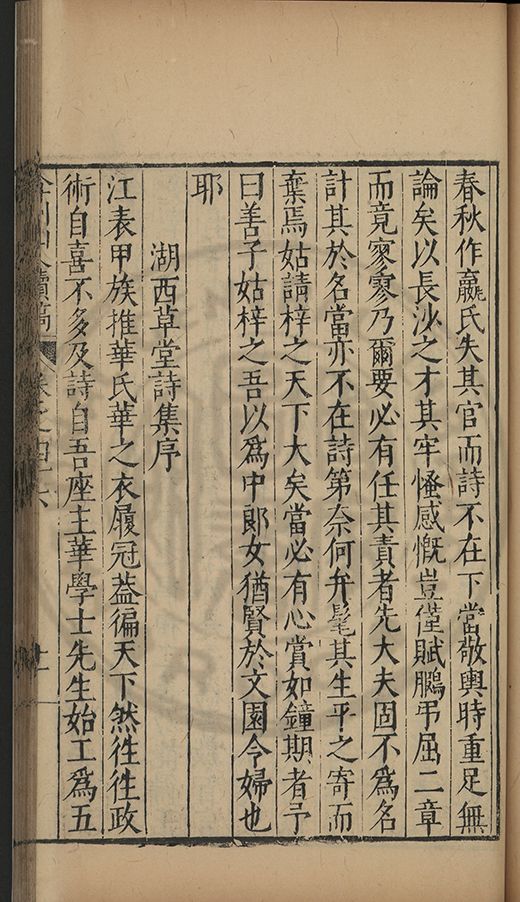 春秋作嬴氏失其官而詩不在下當敬輿時重足無
論矣以長沙之才其牢慅感慨豈僅賦鵩弔屈二章
而竟寥寥乃爾要必有任其責者先大夫固不爲名
計其於名當亦不在詩第奈何弁髦其生平之寄而
棄焉姑請梓之天下大矣當必有心賞如鐘期者予
曰善子姑梓之吾以爲中郎女猶賢於文園令婦也
耶
湖西草堂詩集序
江表甲族推華氏華之衣履冠蓋徧天下然徃徃政
術自喜不多及詩自吾座主華學士先生始工爲五
續稿 卷之四十六 十一